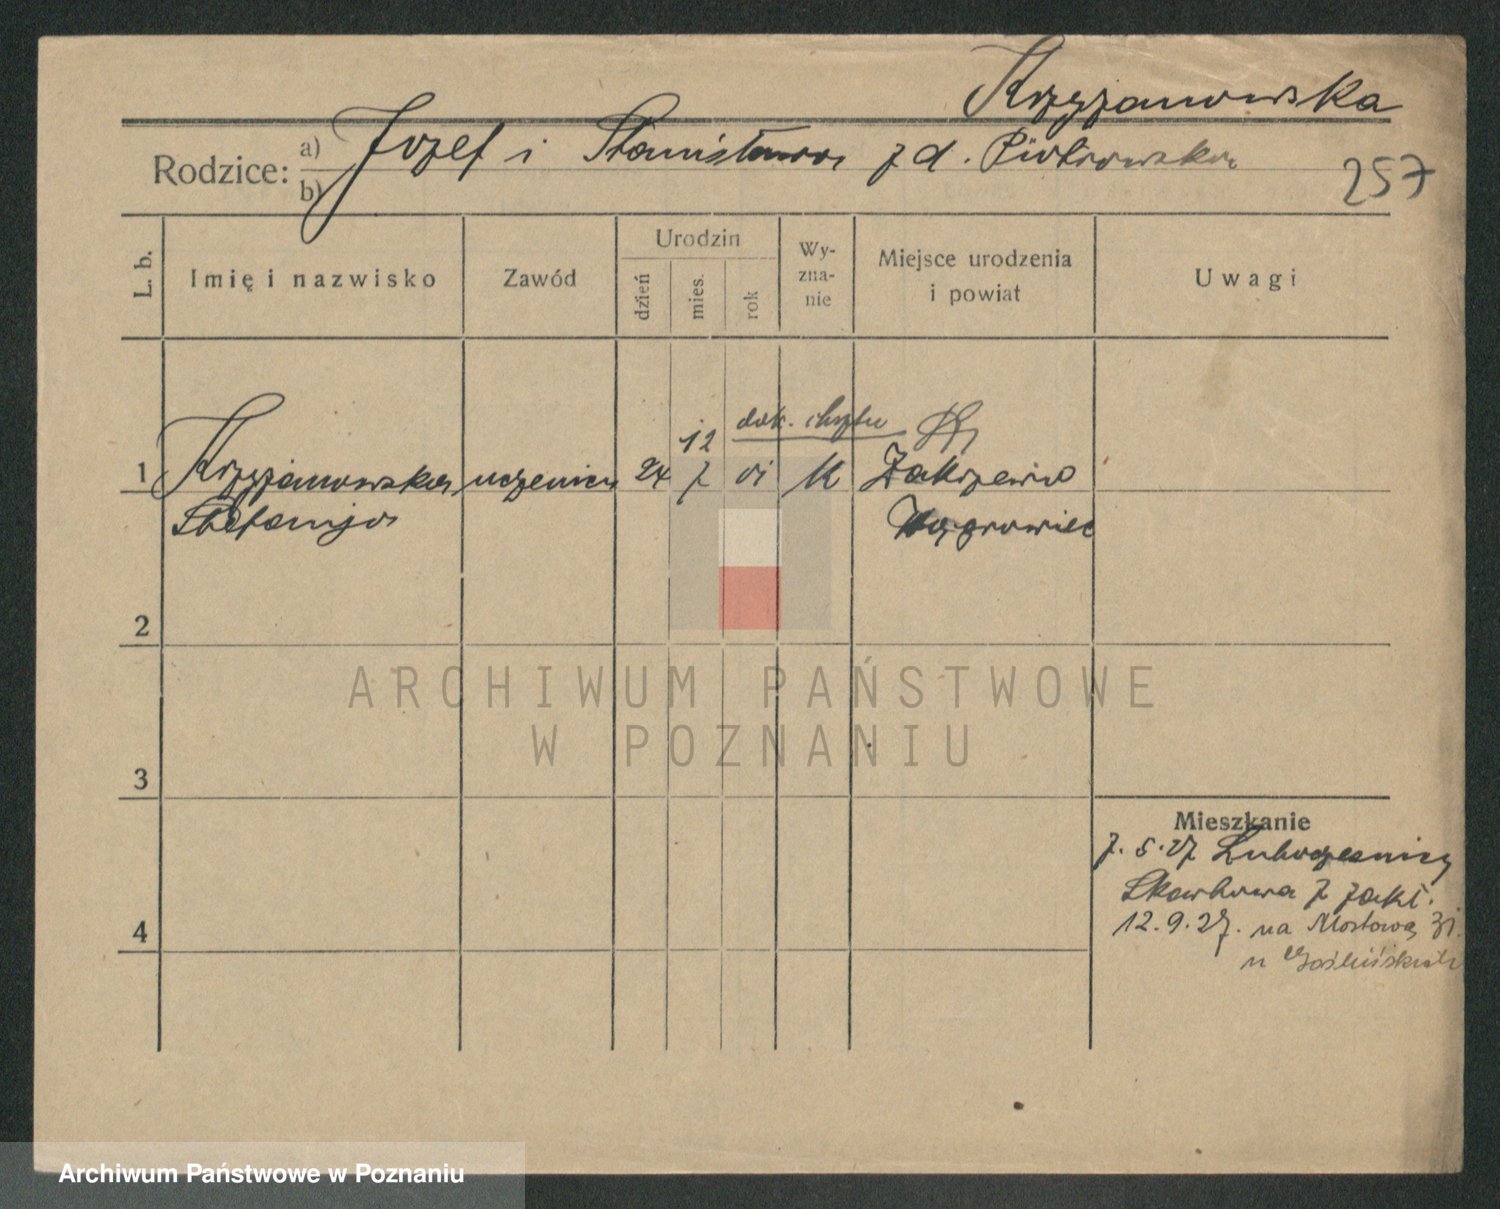 Krzyżanowska
Rodzice: a) Józef i Stanisława z d. Piotrowska
b)
257
L. b.
Imię i nazwisko
Zawód
Urodzin
dzień
mies.
rok
Wy-
zna-
nie
Miejsce urodzenia
i powiat
Uwagi
12 dok. chrztu
1 Krzyżanowska uczenica 24 7 01 K Zakrzewo
Stefanja Wągrowiec
2
3
4
Mieszkanie
7. 5. 27
Skarbowa 7 zakł.
12. 9. 27. na Mostową 31.
u
ARCHIWUM PAŃSTWOWE
W POZNANIU
Archiwum Państwowe w Poznaniu